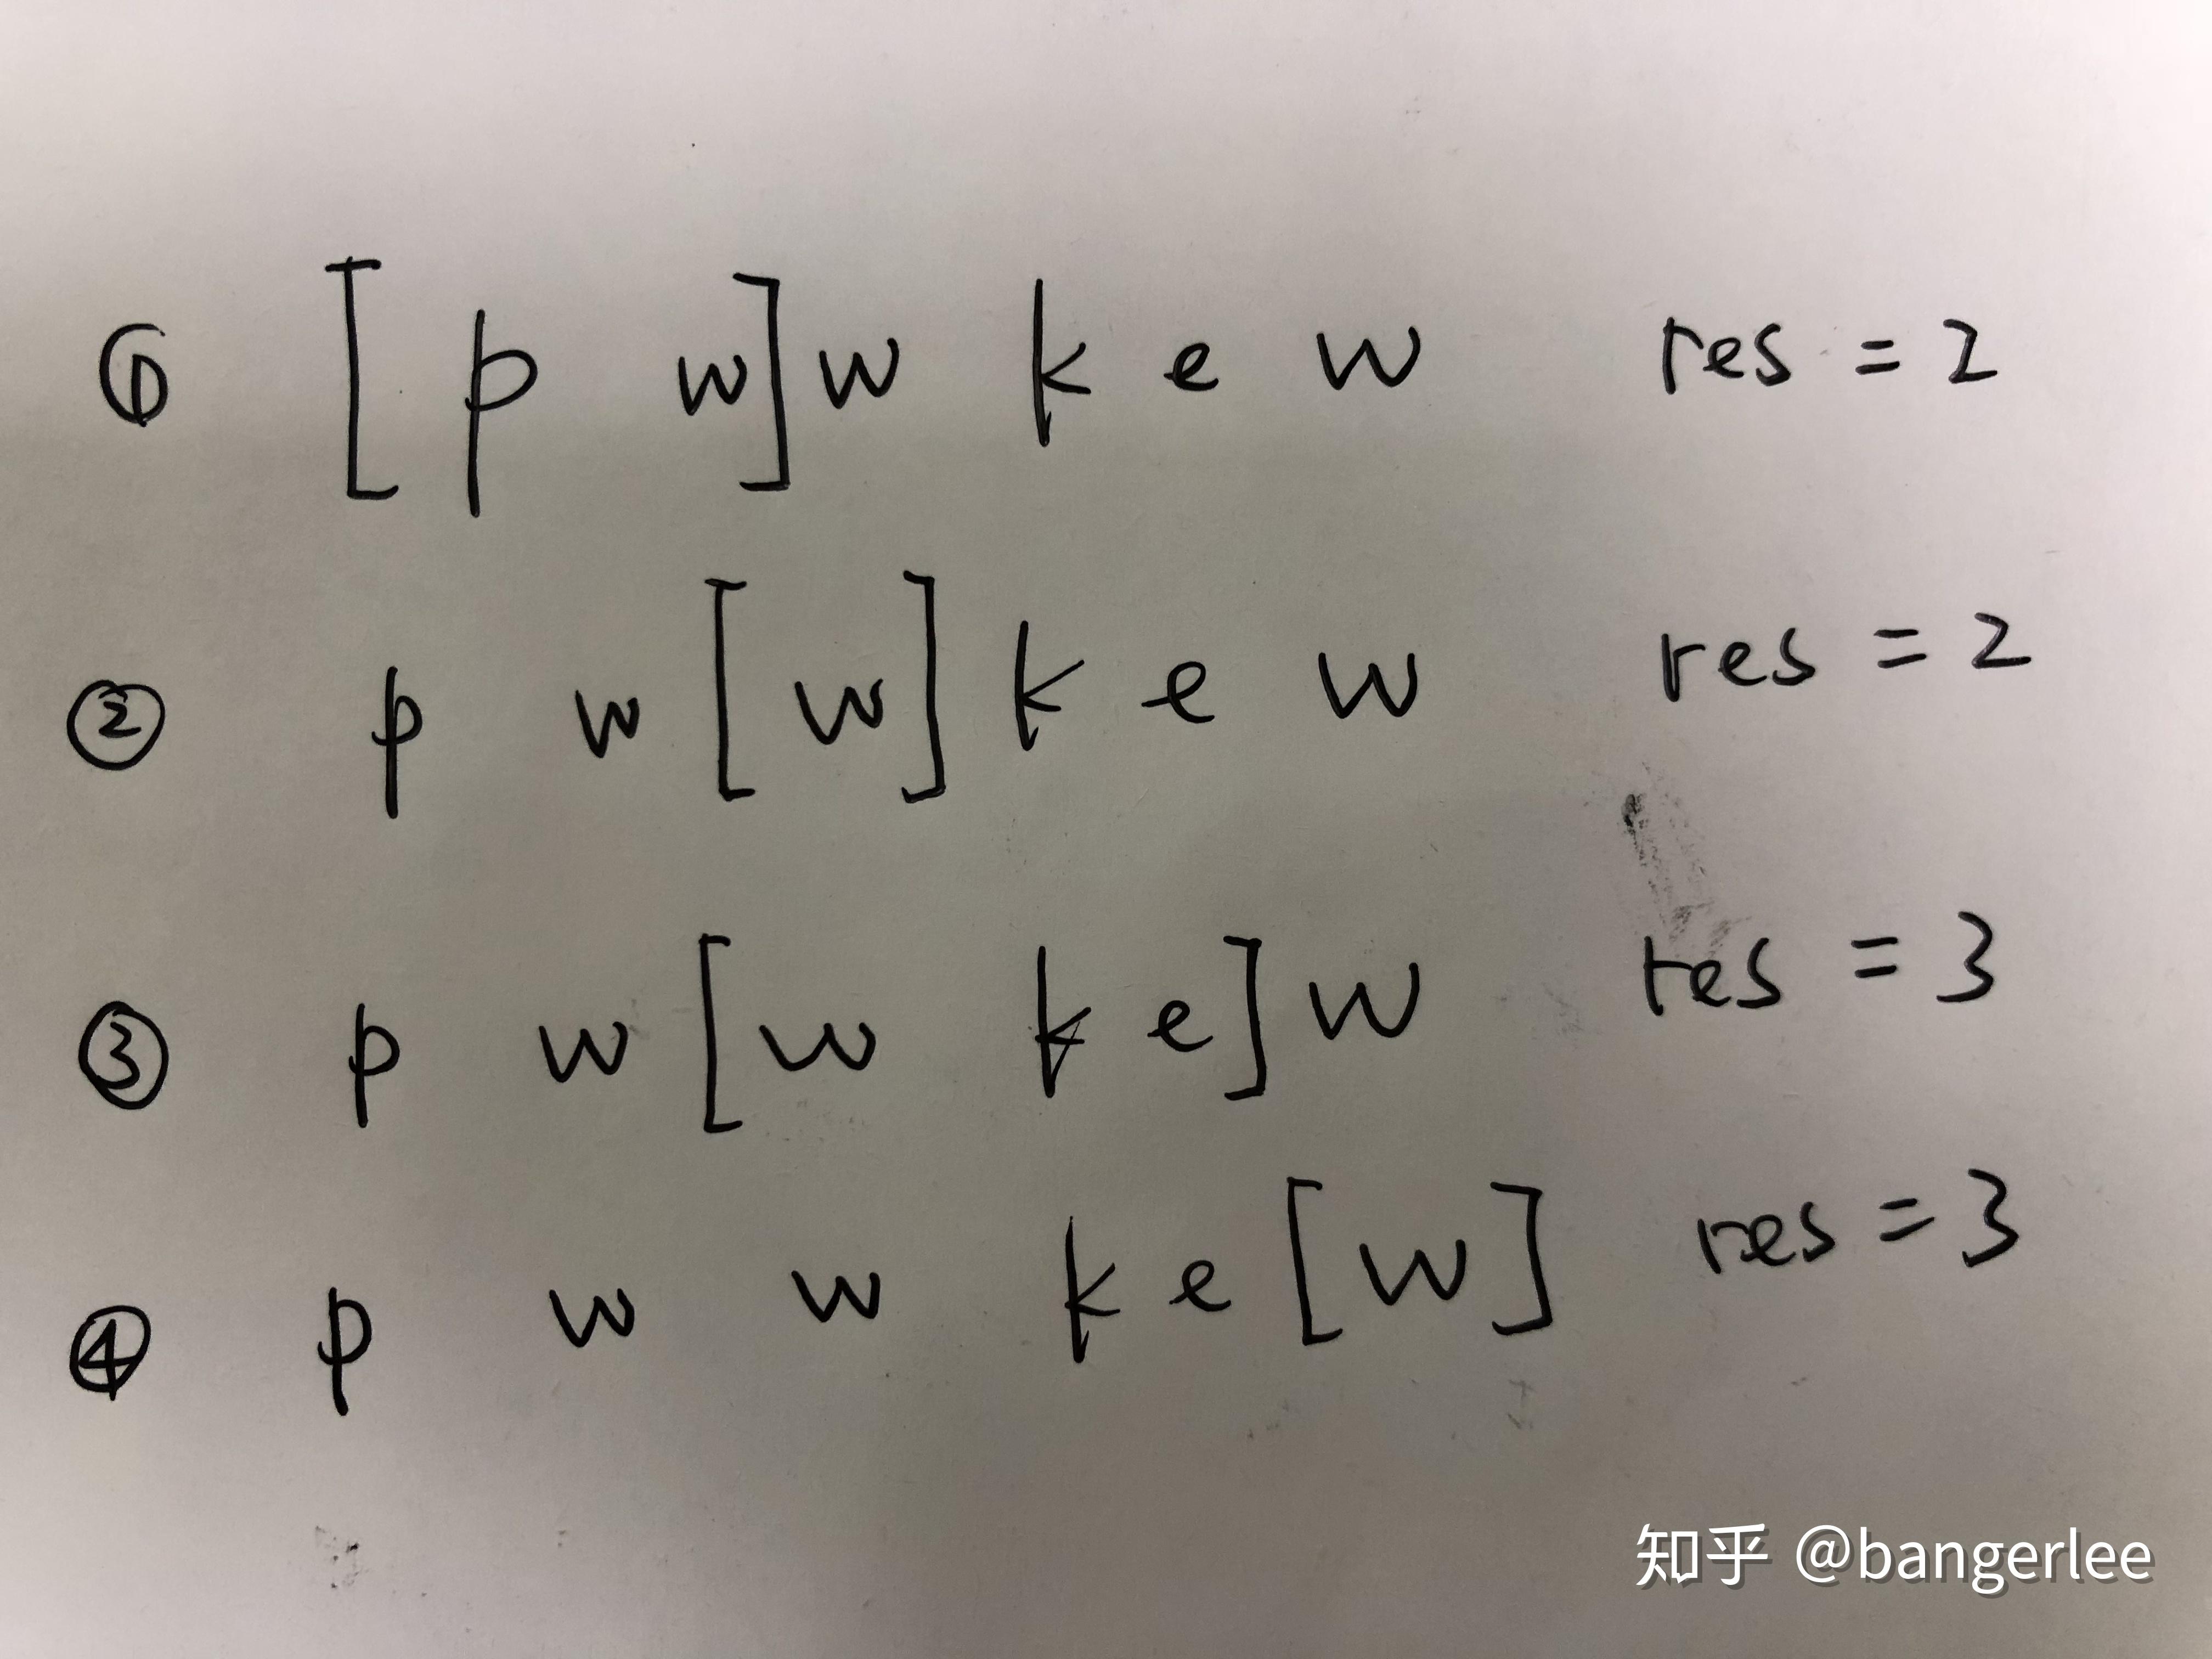 ① [ p w ] w k e w res = 2
② p w [ w ] k e w res = 2
③ p w [ w k e ] w res = 3
④ p w w k e [ w ] res = 3
知乎 @bangerlee